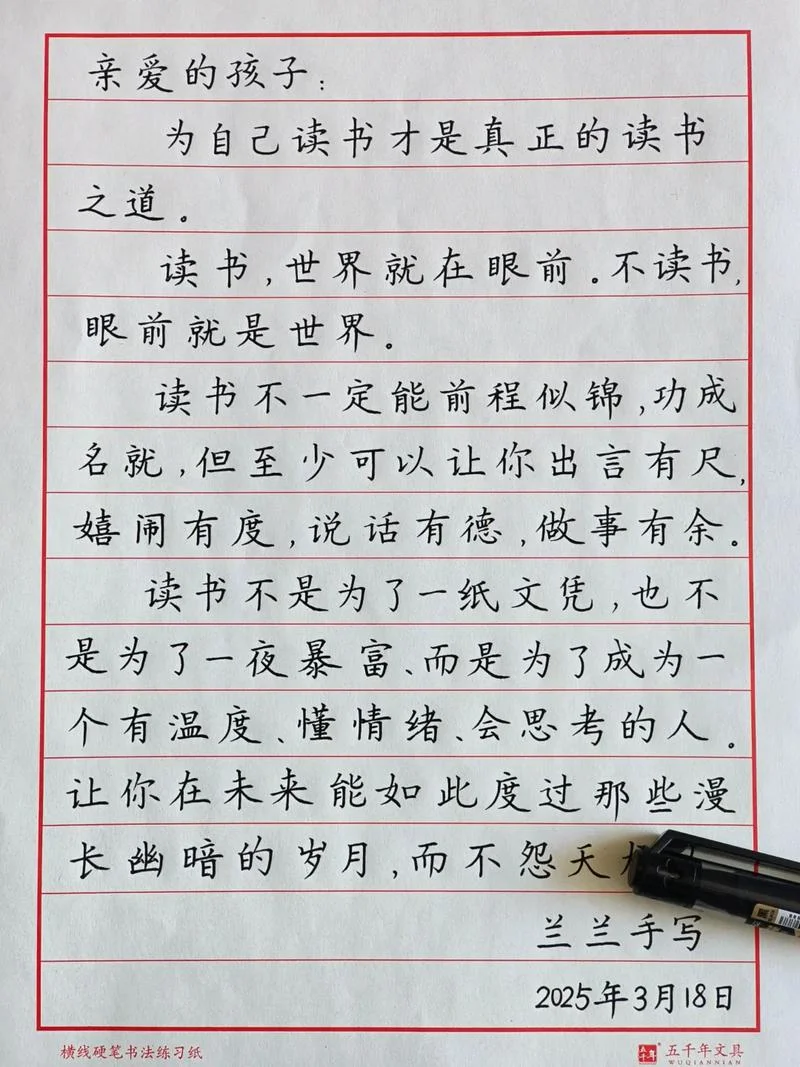 亲爱的孩子：
为自己读书才是真正的读书
之道。
读书,世界就在眼前。不读书,
眼前就是世界。
读书不一定能前程似锦,功成
名就,但至少可以让你出言有尺,
嬉闹有度,说话有德,做事有余。
读书不是为了一纸文凭,也不
是为了一夜暴富、而是为了成为一
个有温度、懂情绪、会思考的人。
让你在未来能如此度过那些漫
长幽暗的岁月,而不怨天
兰兰手写
2025年3月18日
横线硬笔书法练习纸
五千年
五千年文具
WUQIANNIAN